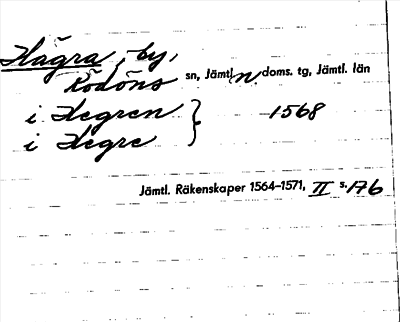 Hägra, by,
Rödöns sn, Jämtl. n doms. tg, Jämtl. län
i Hegren } 1568
i Hegre
Jämtl. Räkenskaper 1564-1571, II s. 176